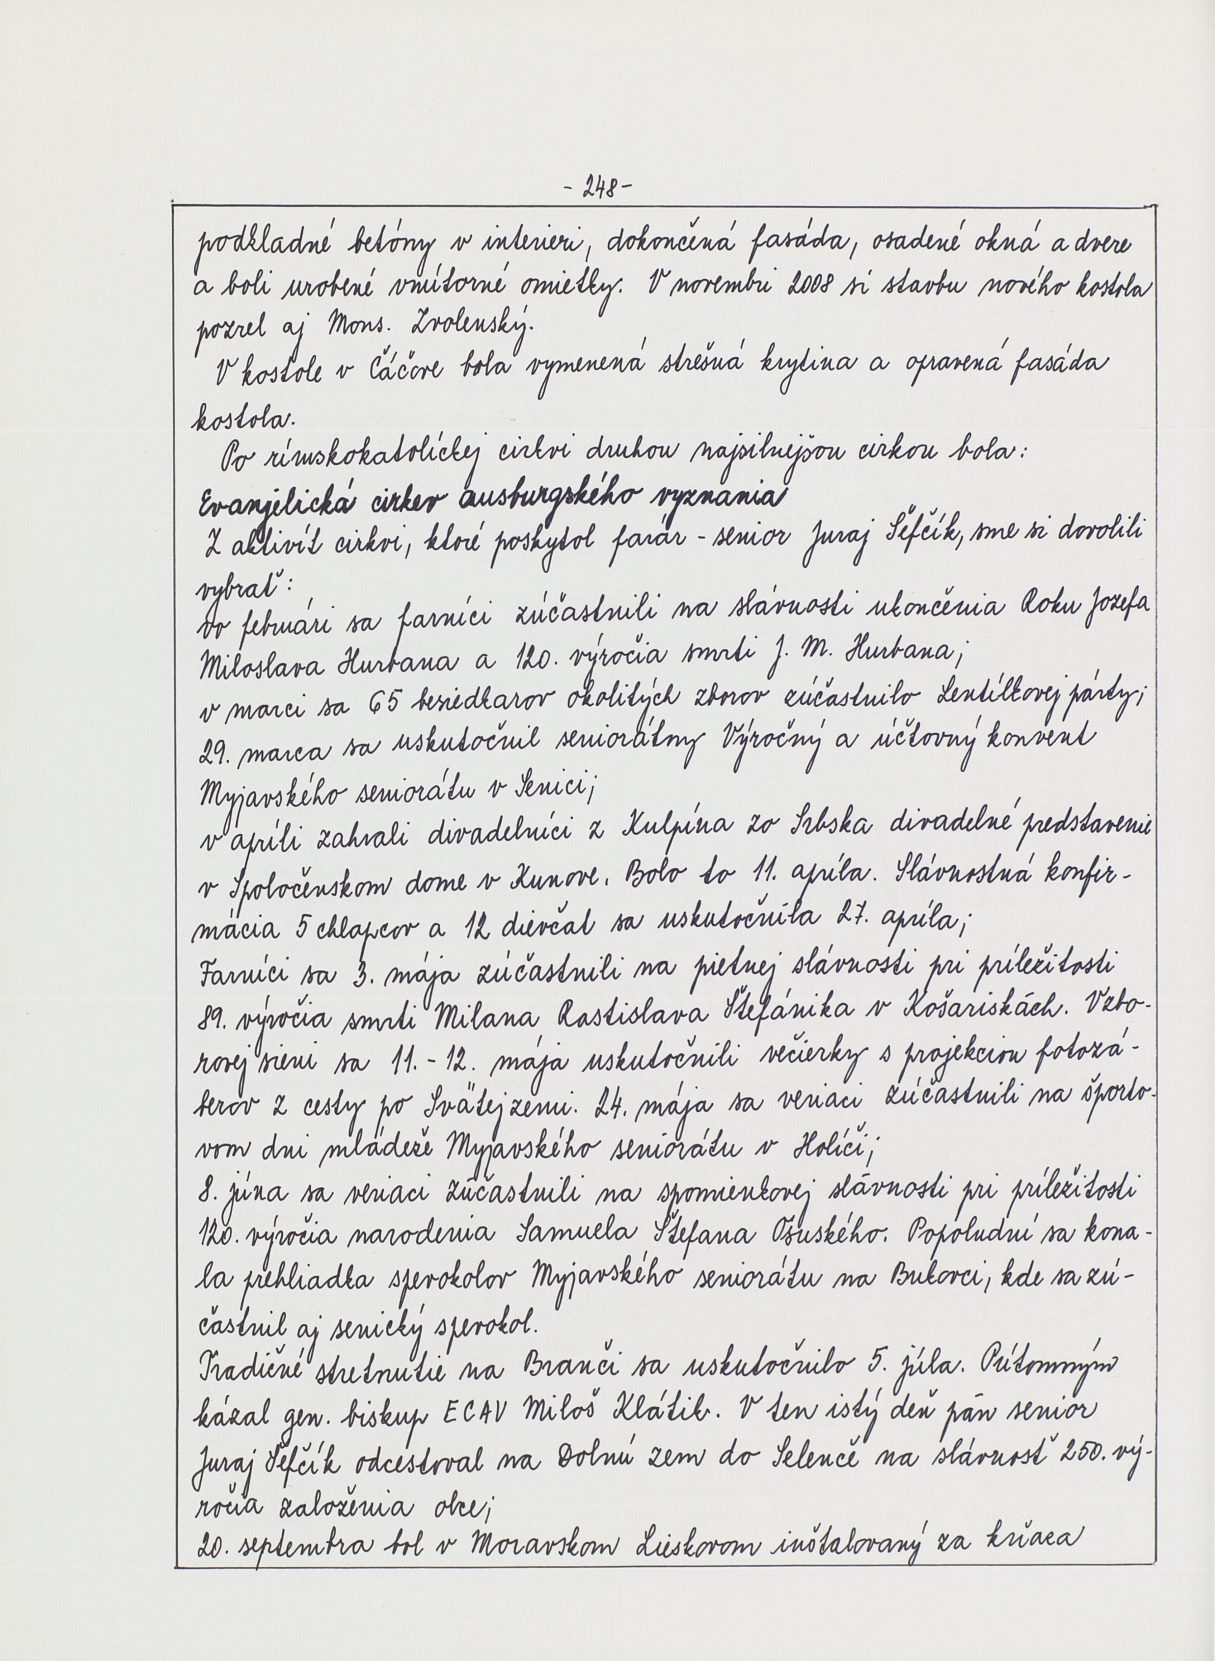 - 248 -
podkladné betóny v interieri, dokončená fasáda, osadené okná a dvere
a boli urobené vnútorné omietky. V novembri 2008 si stavbu nového kostola
pozrel aj Mons. Zvolenský.
V kostole v Čáčove bola vymenená strešná krytina a opravená fasáda
kostola.
Po rímskokatolíckej cirkvi druhou najsilnejšou cirkou bola:
Evanjelická cirkev ausburgského vyznania
Z aktivít cirkvi, ktoré poskytol farár - senior Juraj Šefčík, sme si dovolili
vybrať:
vo februári sa farníci zúčastnili na slávnosti ukončenia Roku Jozefa
Miloslava Hurbana a 120. výročia smrti J. M. Hurbana;
v marci sa 65 besiedkarov okolitých zborov zúčastnilo Lentílkovej párty;
29. marca sa uskutočnil seniorátny Výročný a účtovný konvent
Myjavského seniorátu v Senici;
v apríli zahrali divadelníci z Kulpína zo Srbska divadelné predstavenie
v Spoločenskom dome v Kunove. Bolo to 11. apríla. Slávnostná konfir-
mácia 5 chlapcov a 12 dievčat sa uskutočnila 27. apríla;
Farníci sa 3. mája zúčastnili na pietnej slávnosti pri príležitosti
89. výročia smrti Milana Rastislava Štefánika v Košariskách. V zbo-
rovej sieni sa 11. - 12. mája uskutočnili večierky s projekciou fotozá-
berov z cesty po Svätej zemi. 24. mája sa veriaci zúčastnili na športo-
vom dni mládeže Myjavského seniorátu v Holíči;
8. júna sa veriaci zúčastnili na spomienkovej slávnosti pri príležitosti
120. výročia narodenia Samuela Štefana Osuského. Popoludní sa kona-
la prehliadka spevokolov Myjavského seniorátu na Bukovci, kde sa zú-
častnil aj senický spevokol.
Tradičné stretnutie na Branči sa uskutočnilo 5. júla. Prítomným
kázal gen. biskup ECAV Miloš Klátik. V ten istý deň pán senior
Juraj Šefčík odcestoval na Dolnú zem do Selenče na slávnosť 250. vý-
ročia založenia obce;
20. septembra bol v Moravskom Lieskovom inštalovaný za kňaza